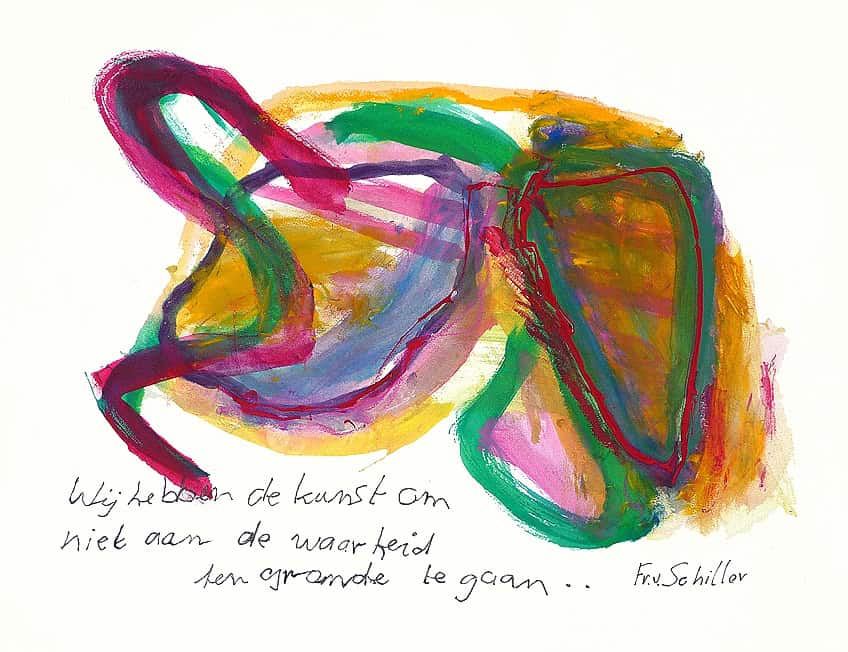 Wij hebben de kunst om
niet aan de waarheid
ten gronde te gaan ..
Fr.v.Schiller